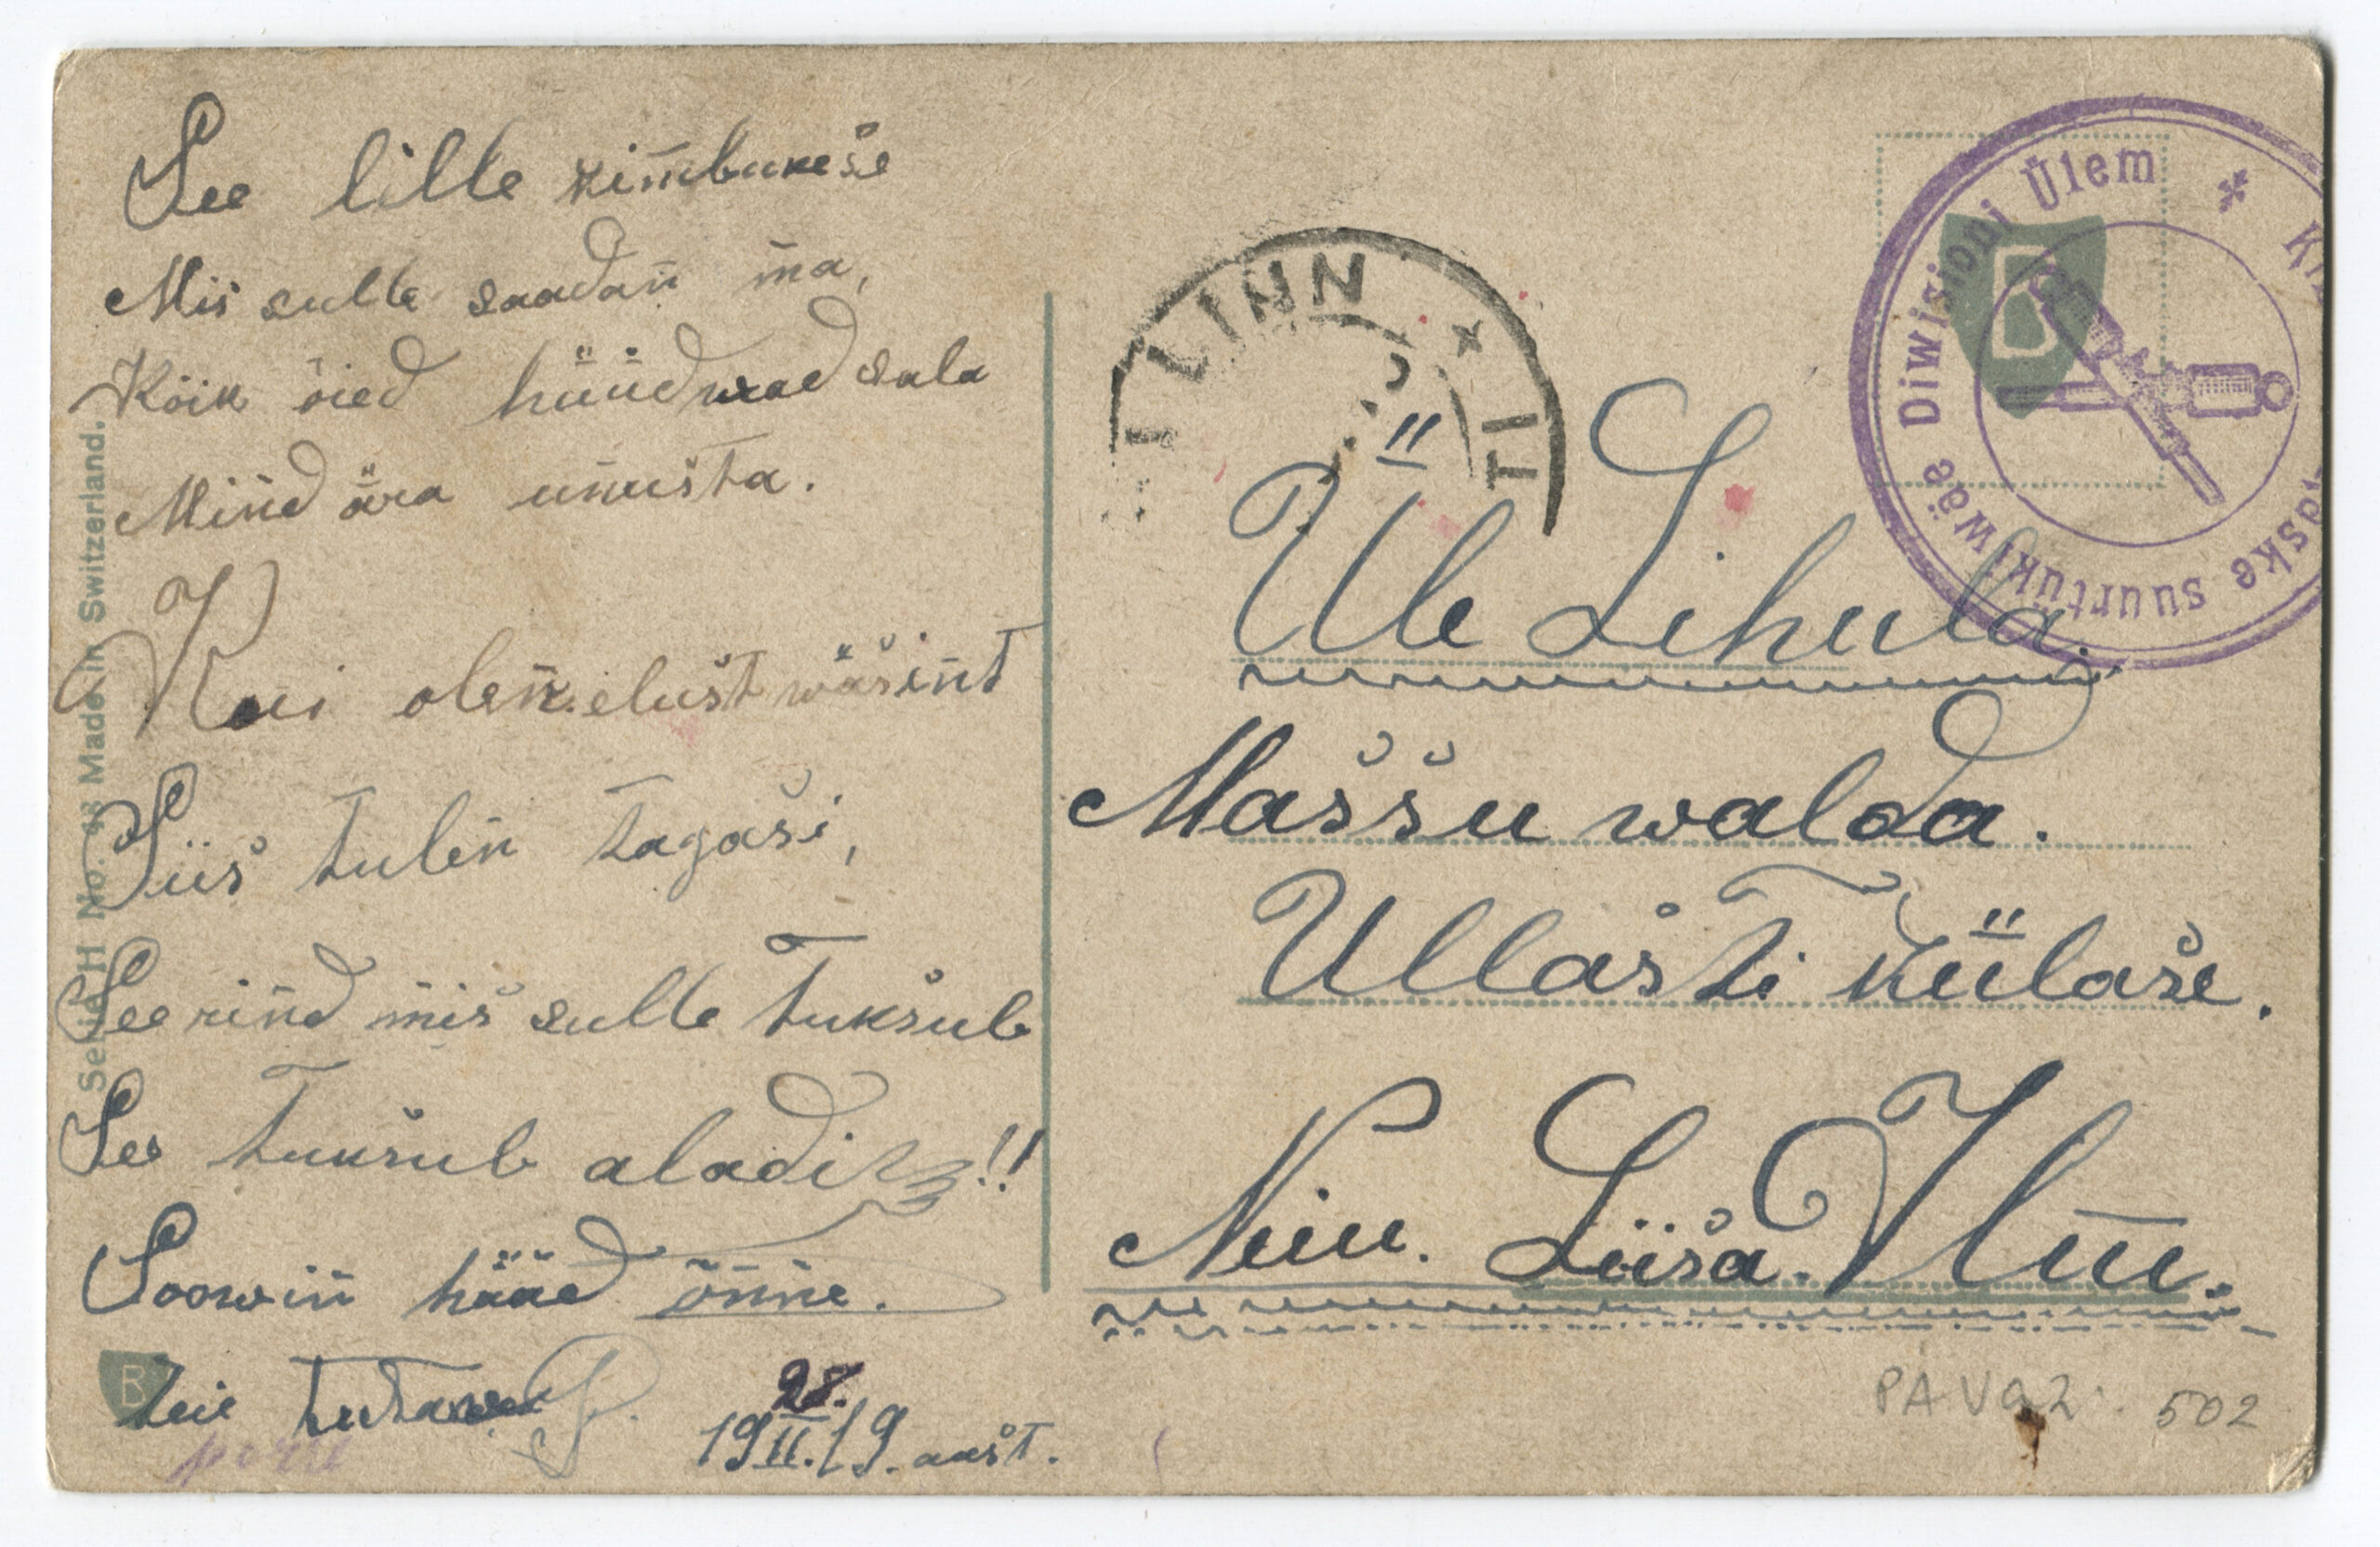 See lille kimbukese
Mis sulle saadan ma,
Kõik õied hüüdwad sala
Mind ära unusta.
Kui olen elust wäsint
Siis tulen tagasi,
See rind mis sulle tuksub
See tuksub aladi !!
Soowin hääd õnne.
Teie tuttaw
28.
19 II. 19. aast.
Serie H No. 98 Made in Switzerland.
B
LINN × TI
Diwisioni Ülem
raske suurtükiwäe
B
Üle Lihula
Massu walda.
Ullasti külase.
Neiu. Liisa. Ilm.
PAV92. 502